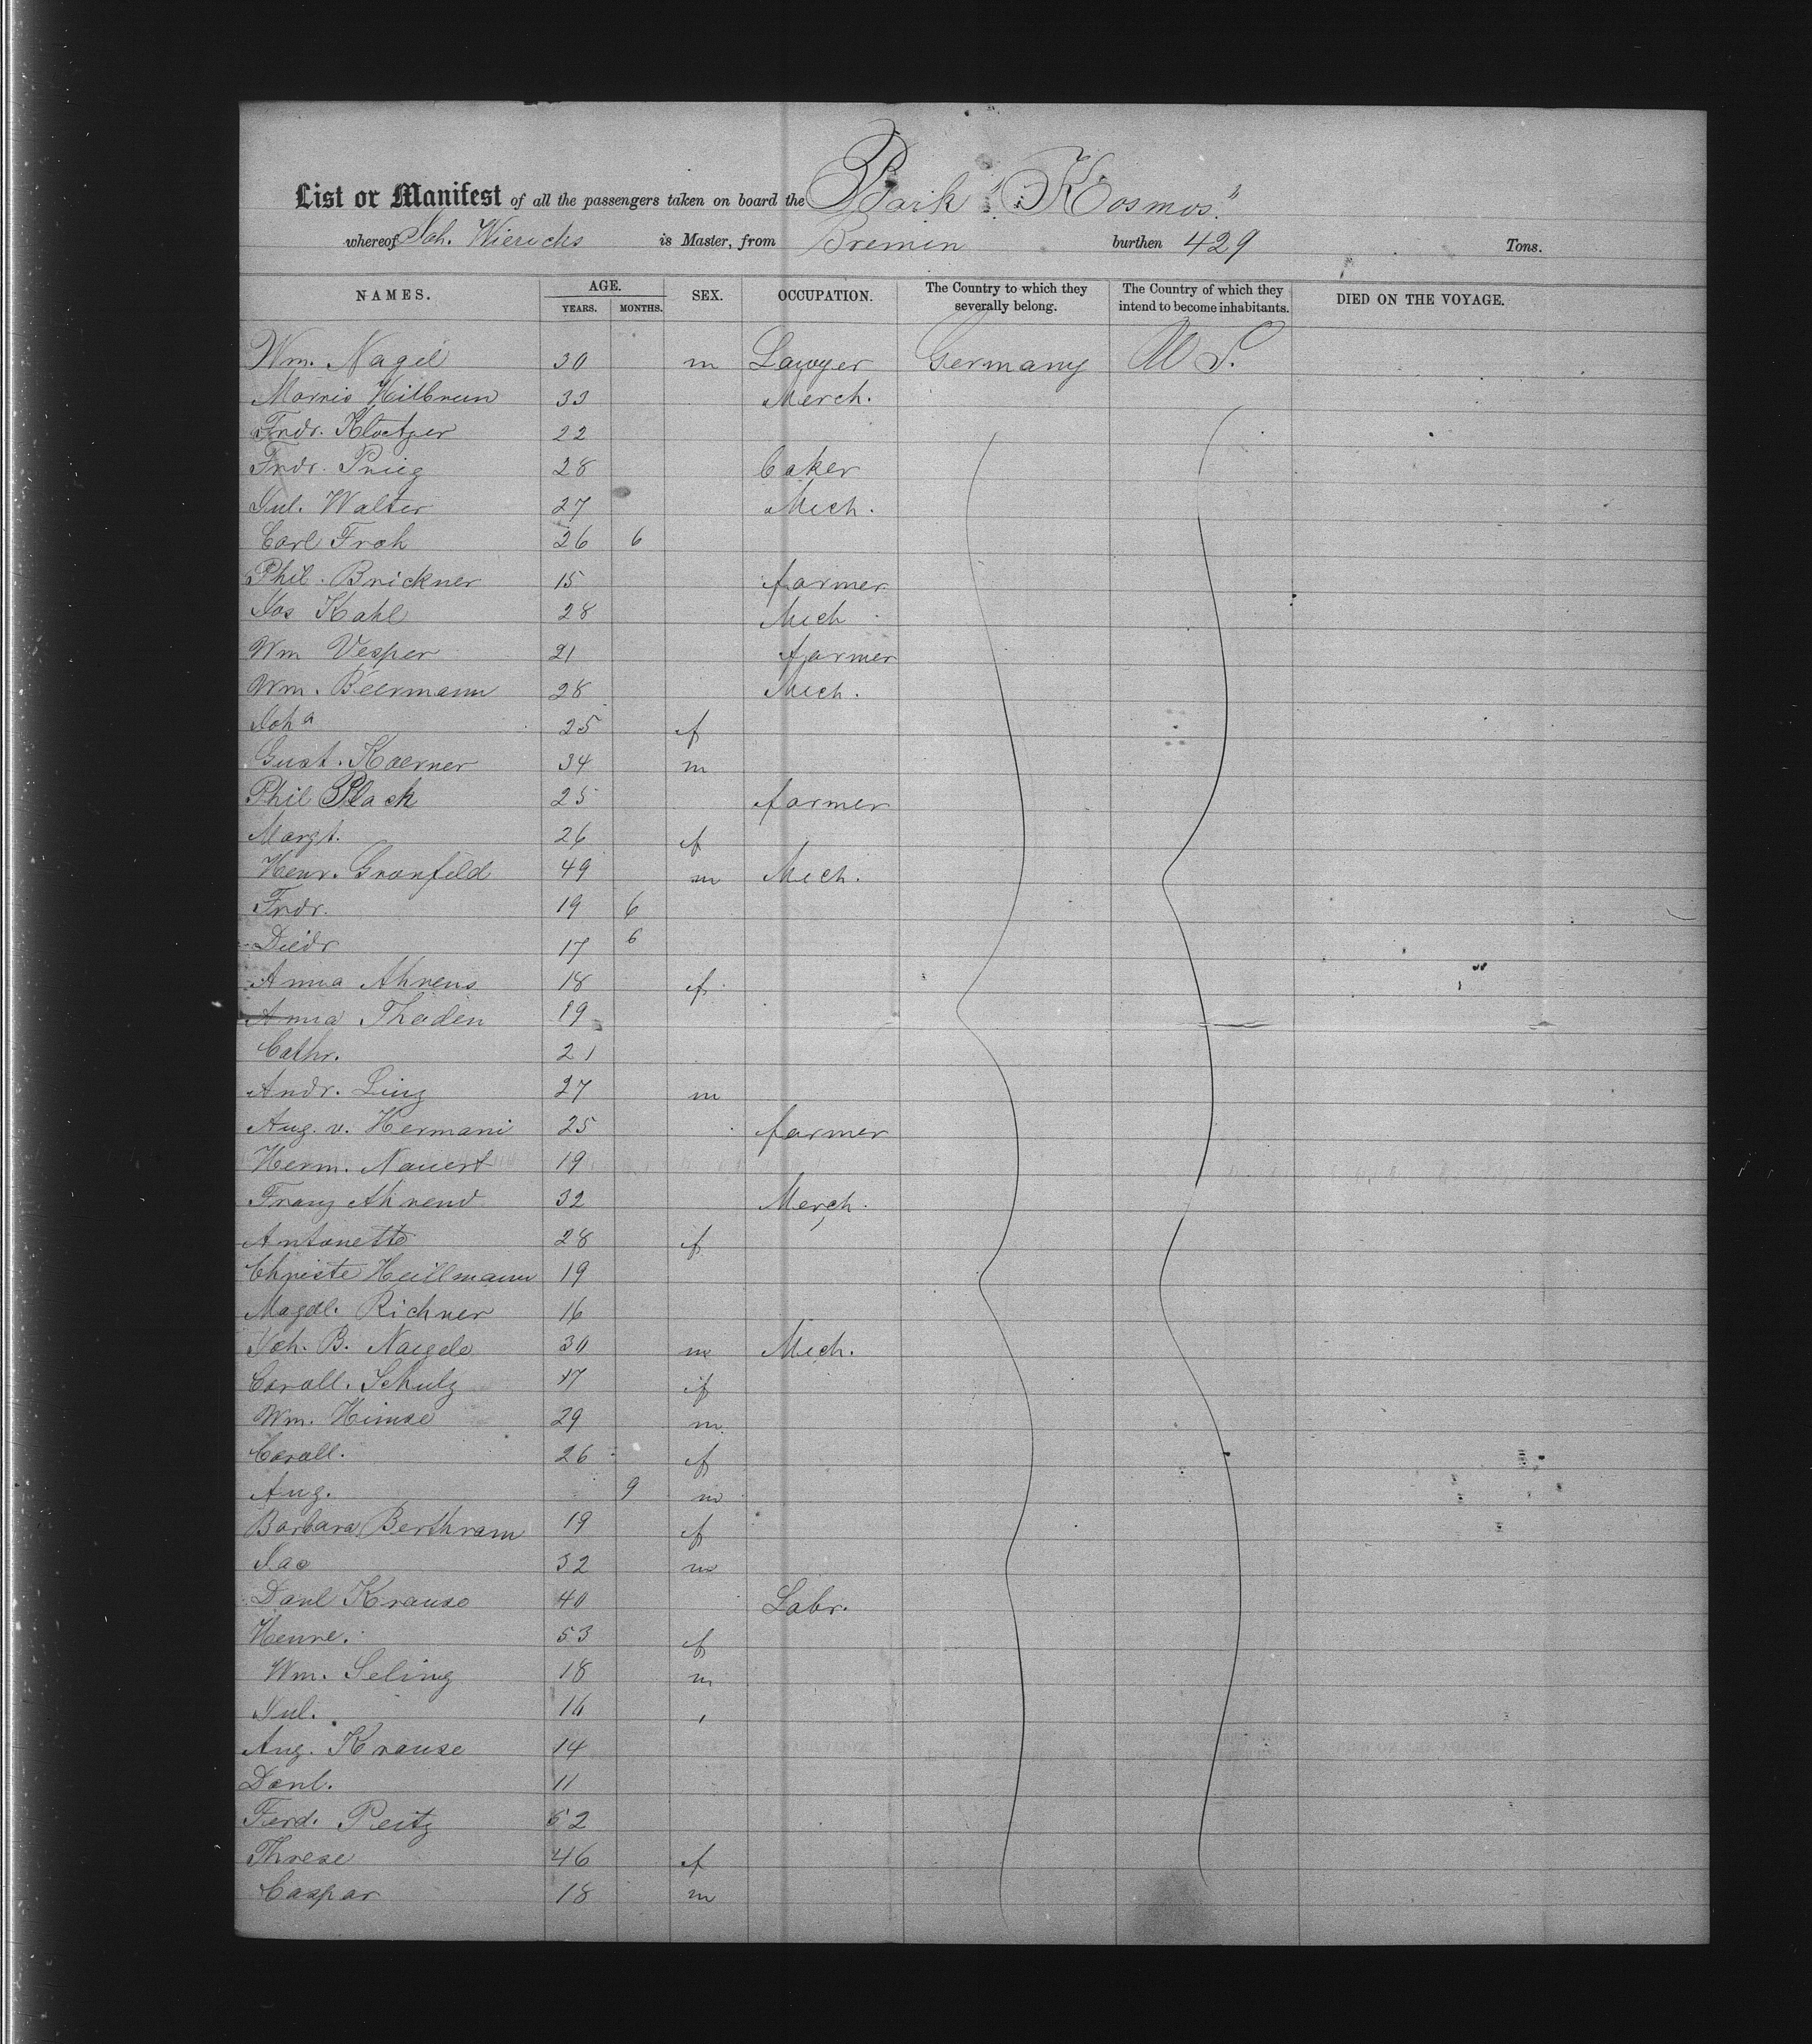 List or Manifest of all the passengers taken on board the Bark "Kosmos"
whereof Joh. Wiericks is Master, from Bremen burthen 429 Tons.
NAMES. AGE. YEARS. MONTHS. SEX. OCCUPATION. The Country to which they severally belong. The Country of which they intend to become inhabitants. DIED ON THE VOYAGE.
Wm. Nagel 30 m Lawyer Germany U S.
Morris Heilbrun 33 Merch.
Frdr. Kloetzer 22
Frdr. 28 baker
Jul. Walter 27 Mech.
Carl Froh 26 6
Phil. Brickner 15 farmer
Jos Kahl 28 Mech
Wm Vesper 21 farmer
Wm. Beermann 28 Mech.
Joh a 25 f
Gust. Koerner 34 m
Phil Plack 25 farmer
Margt. 26 f
Henr. Granfeld 49 m Mech.
Frdr. 19 6
Diedr 17 6
Anna Ahrens 18 f
Anna Thaden 19
Cathr. 21
Andr. Ling 27 m
Aug. v. Hermani 25 farmer
Herm. Nauert 19
Franz Ahrend 32 Merch.
Antonette 28 f
Christe Heillmann 19
Magdl. Richner 16
Joh. B. Naegele 30 m Mech.
Caroll. Schutz 17 f
Wm. Himse 29 m
Caroll. 26 f
Aug. 9 m
Barbara Berthram 19 f
Jac 32 m
Danl Krause 40 Labr.
Henre. 53 f
Wm. Seling 18 m
Jul. 16 ,
Aug. Krause 14
Danl. 11
Ferd. Peitz 52
Threse 46 f
Caspar 18 m